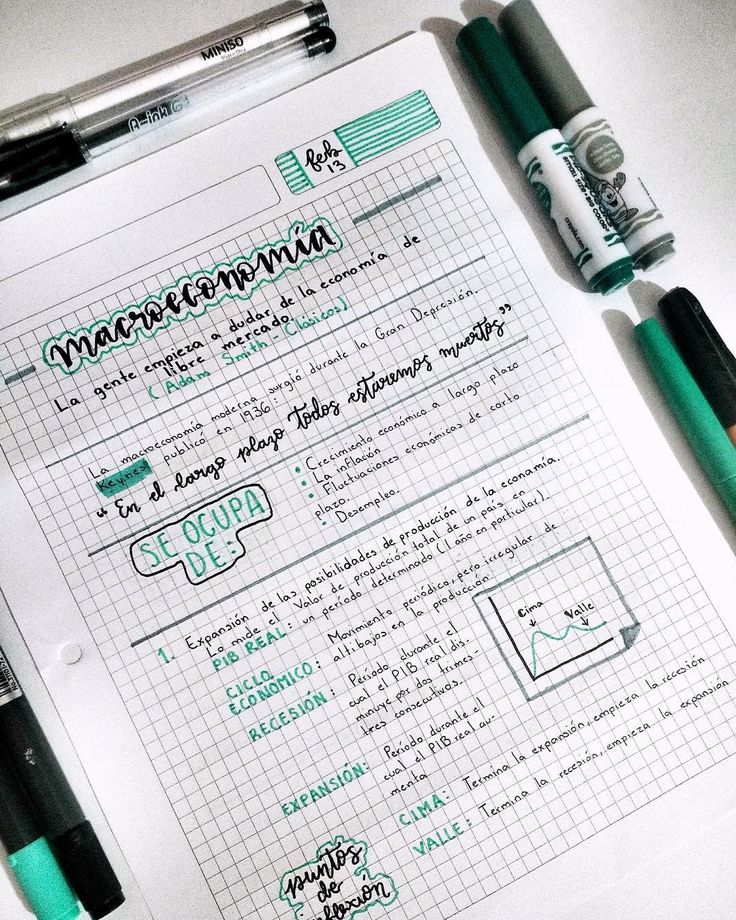 MINISO
B-ink
feb
13
macroeconomía
La gente empieza a dudar de la economía de
libre mercado.
(Adam Smith - Clásicos)
La macroeconomía moderna surgió durante la Gran Depresión.
Keynes publicó en 1936:
"En el largo plazo todos estaremos muertos"
SE OCUPA
DE:
• Crecimiento económico a largo plazo
• La inflación
• Fluctuaciones económicas de corto
plazo.
• Desempleo.
1. Expansión de las posibilidades de producción de la economía.
Lo mide el
PIB REAL: Valor de producción total de un país en
un período determinado (1 año en particular).
CICLO
ECONÓMICO: Movimiento periódico, pero irregular de
altibajos en la producción
Cima
Valle
RECESIÓN: Período durante el
cual el PIB real dis-
minuye por dos trimes-
tres consecutivos.
EXPANSIÓN: Período durante el
cual el PIB real au-
menta
puntos
de
inflexión
CIMA: Termina la expansión, empieza la recesión
VALLE: Termina la recesión, empieza la expansión
Crayola